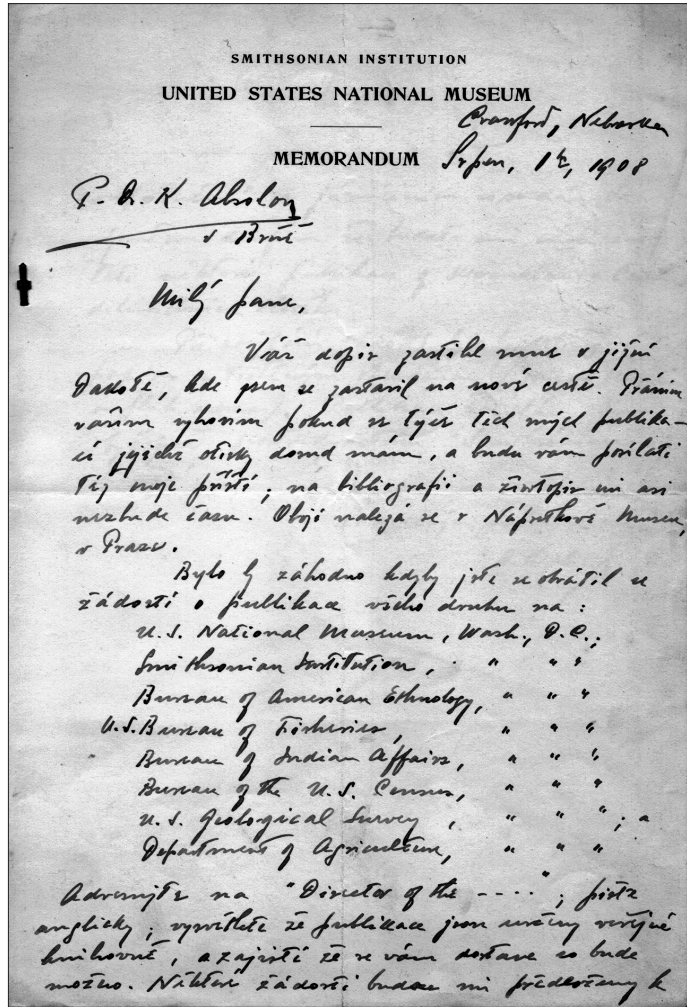 SMITHSONIAN INSTITUTION
UNITED STATES NATIONAL MUSEUM
Crawford, Nebraska
MEMORANDUM Srpen, 1908
P. Dr. K. Absolon
v Brně
Milý pane,
Váš dopis zastihl mne v jižní
Dakotě, kde jsem se zastavil na nové cestě. Přáním
vašim vyhovím pokud se týče těch mých publika-
cí jejichž otisky doma mám, a budu vám posílati
též moje příští; na bibliografii a životopis mi asi
nezbude času. Obojí nalezá se v Náprstkově Museu,
v Praze.
Bylo by záhodno kdyby jste se obrátil se
žádostí o publikace všeho druhu na:
U.S. National Museum, Wash., D.C.;
Smithsonian Institution, " " "
Bureau of American Ethnology, " " "
U.S. Bureau of Fisheries, " " "
Bureau of Indian Affairs, " " "
Bureau of the U.S. Census, " " "
U.S. Geological Survey, " " "; a
Department of Agriculture, " " "
Adresujte na "Director of the ----"; pište
anglicky; vysvětlete že publikace jsou určeny veřejné
knihovně, a zajistí že se vám dostane co bude
možno. Některé žádosti budou mi předloženy k